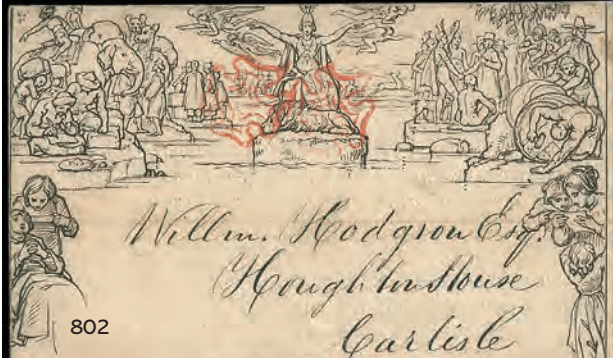 Willm. Hodgson Esq.
Houghton House
Carlisle
802